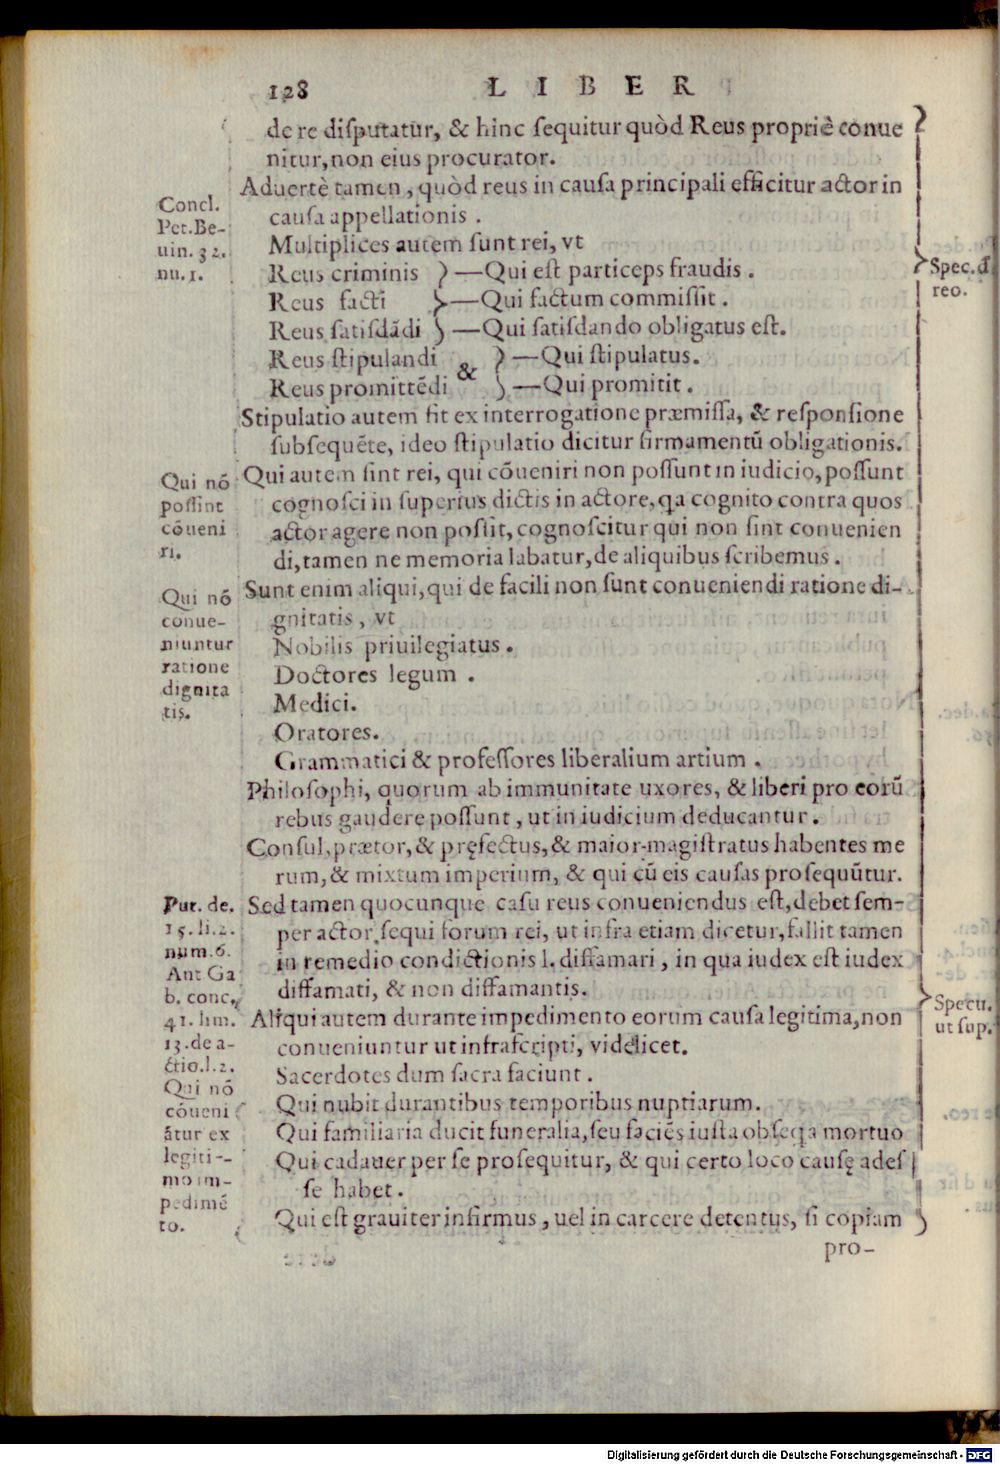 128 LIBER
de re disputatur, & hinc sequitur quòd Reus propriè conue
nitur, non eius procurator.
Aduertè tamen, quòd reus in causa principali efficitur actor in
causa appellationis.
Concl.
Pet. Be-
uin. 32.
nu. 1.
Multiplices autem sunt rei, vt
Reus criminis } —Qui est particeps fraudis.
Reus facti } —Qui factum commissit.
Reus satisdãdi } —Qui satisdando obligatus est.
Reus stipulandi & } —Qui stipulatus.
Reus promittẽdi } —Qui promitit.
Spec. d̃
reo.
Stipulatio autem fit ex interrogatione præmissa, & responsione
subsequẽte, ideo stipulatio dicitur firmamentũ obligationis.
Qui autem sint rei, qui cõueniri non possunt in iudicio, possunt
cognosci in superius dictis in actore, qa cognito contra quos
actor agere non possit, cognoscitur qui non sint conuenien
di, tamen ne memoria labatur, de aliquibus scribemus.
Qui nõ
possint
cõueni
ri.
Sunt enim aliqui, qui de facili non sunt conueniendi ratione di-
gnitatis, vt
Nobilis priuilegiatus.
Doctores legum.
Medici.
Oratores.
Grammatici & professores liberalium artium.
Qui nõ
conue-
niuntur
ratione
dignita
tis.
Philosophi, quorum ab immunitate uxores, & liberi pro eorũ
rebus gaudere possunt, ut in iudicium deducantur.
Consul, prætor, & pręfectus, & maior magistratus habentes me
rum, & mixtum imperium, & qui cũ eis causas prosequũtur.
Sed tamen quocunque casu reus conueniendus est, debet sem-
per actor sequi forum rei, ut infra etiam dicetur, fallit tamen
in remedio condictionis l. diffamari, in qua iudex est iudex
diffamati, & non diffamantis.
Put. de.
15. li. 2.
num. 6.
Ant Ga
b. conc.
41. lim.
13. de a-
ctio. l. 2.
Aliqui autem durante impedimento eorum causa legitima, non
conueniuntur ut infrascripti, videlicet.
Sacerdotes dum sacra faciunt.
Qui nubit durantibus temporibus nuptiarum.
Qui familiaria ducit funeralia, seu faciẽs iusta obseqa mortuo
Qui cadauer per se prosequitur, & qui certo loco causę ades
se habet.
Qui est grauiter infirmus, uel in carcere detentus, si copiam
Qui nõ
cõueni
ãtur ex
legiti-
mo im-
pedimẽ
to.
Specu.
ut sup.
pro-
Digitalisierung gefördert durch die Deutsche Forschungsgemeinschaft - DFG